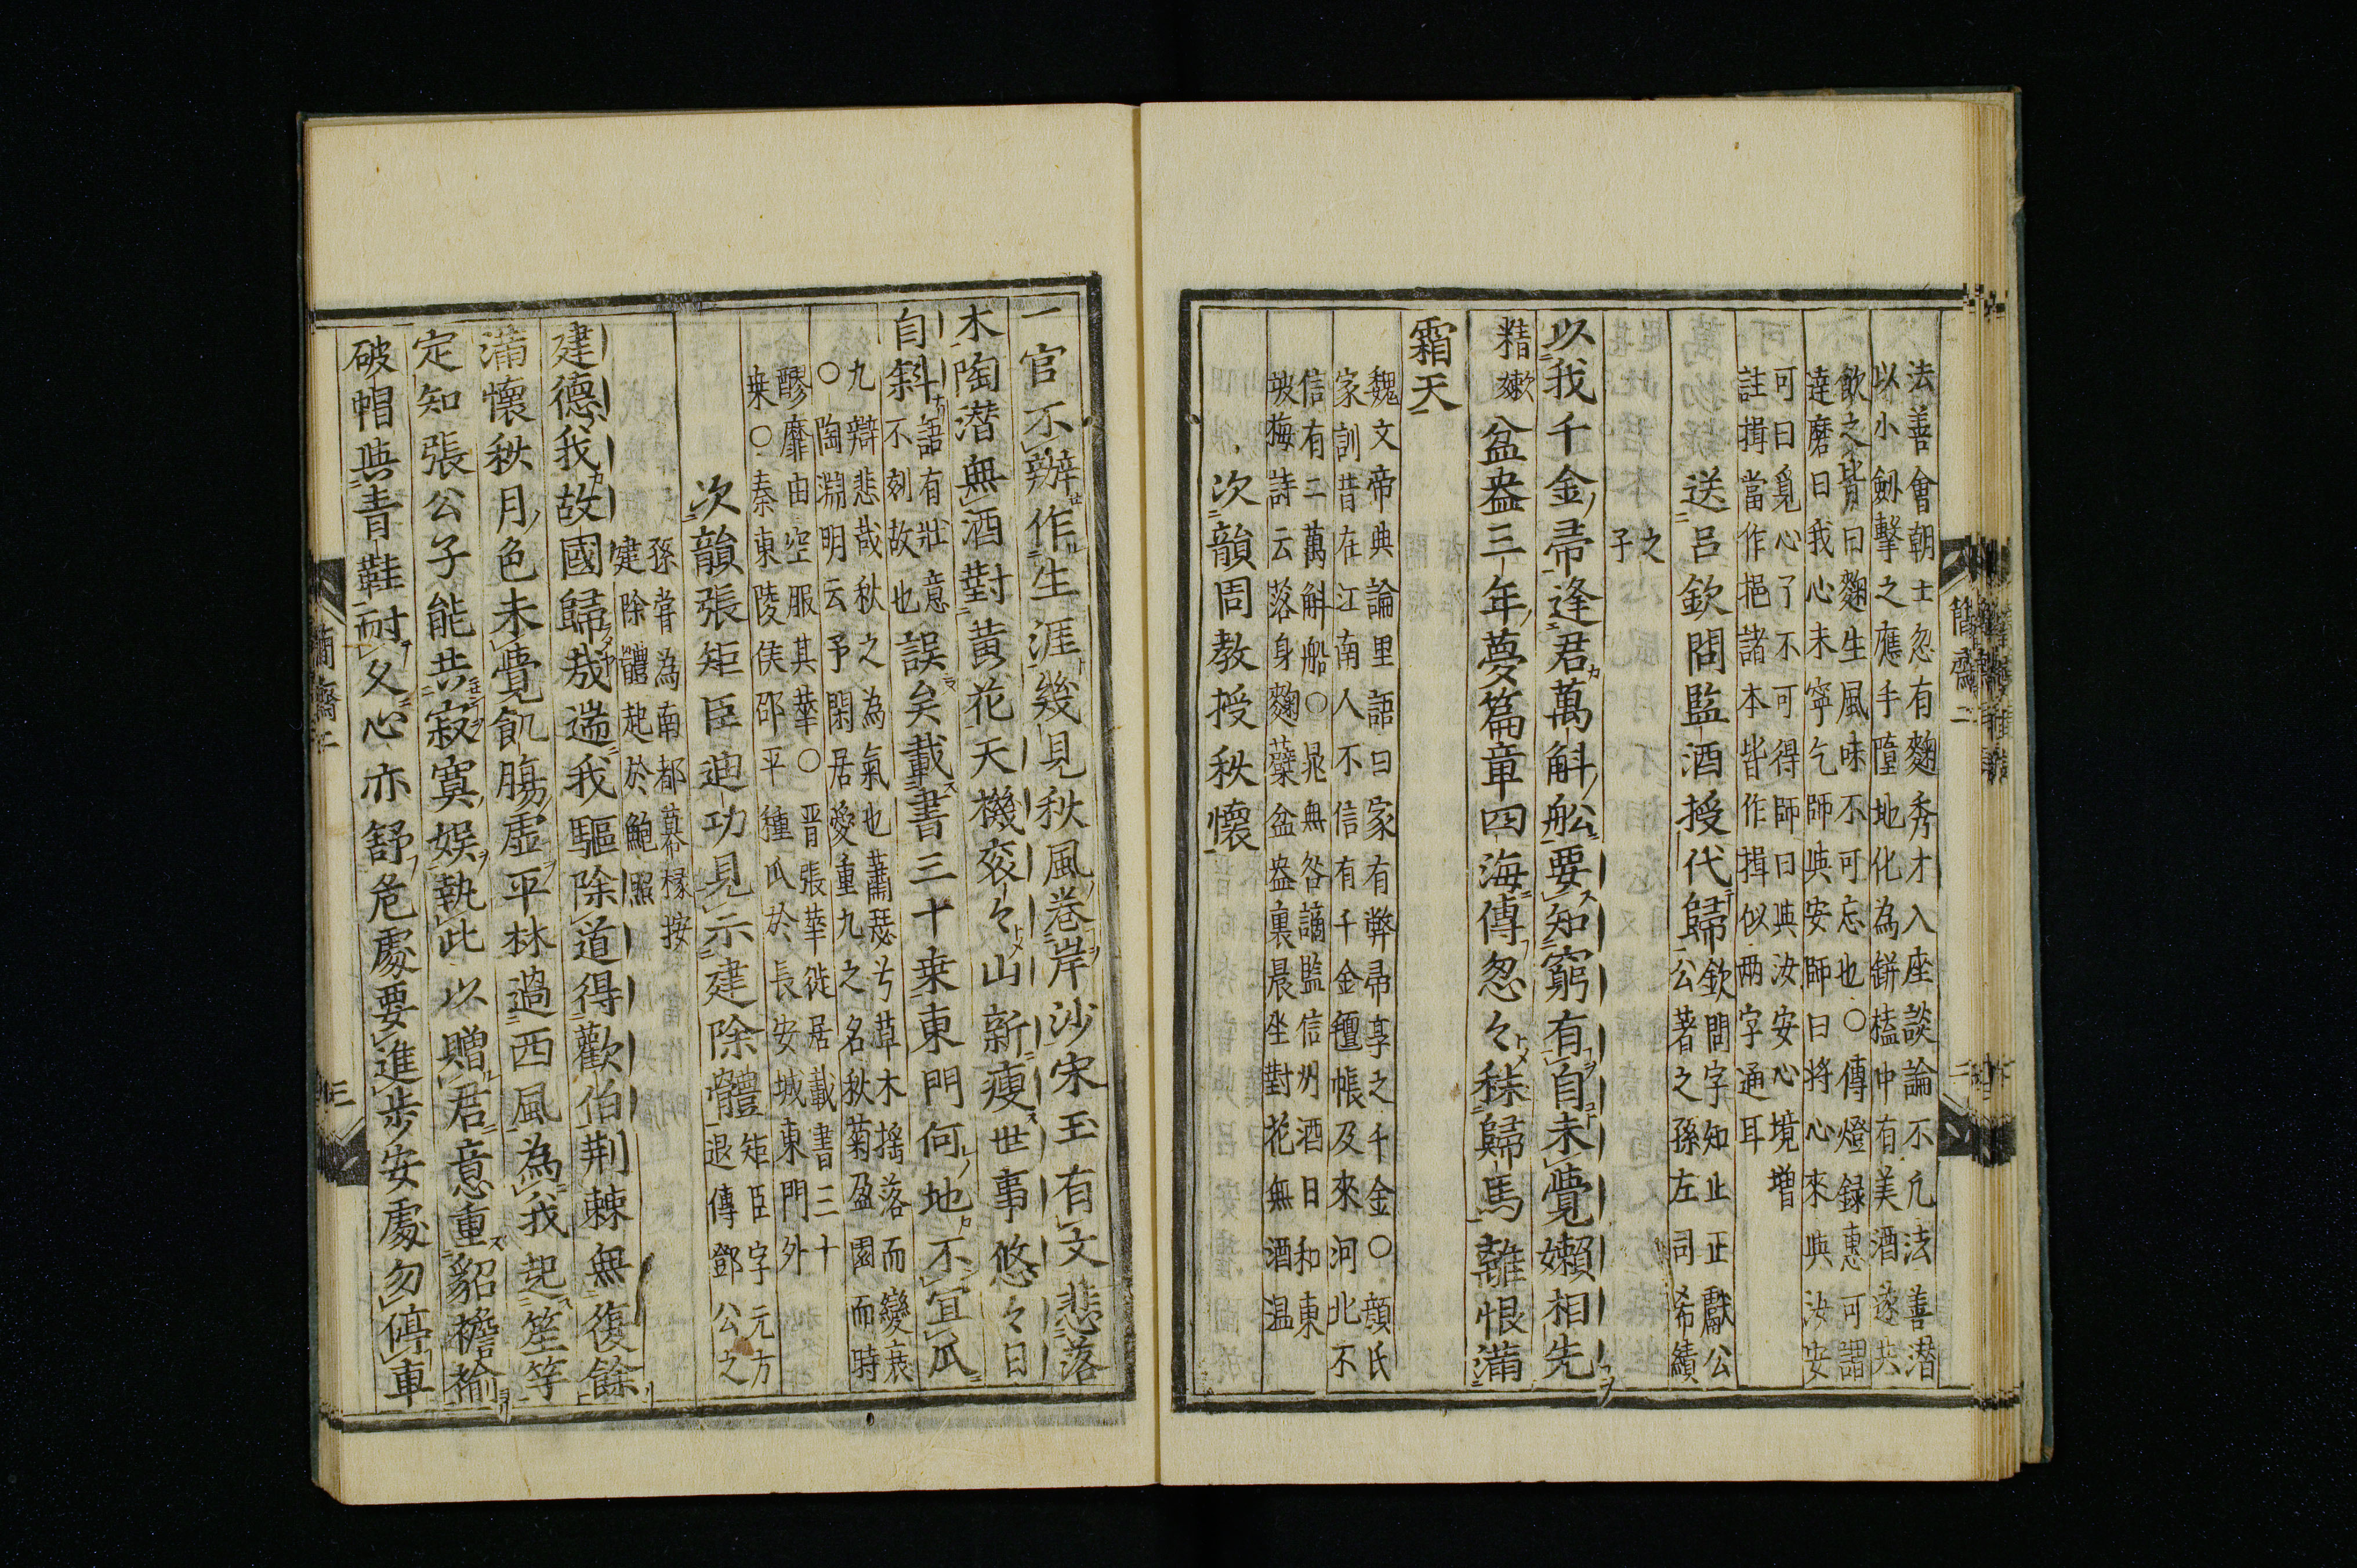 法善會朝士忽有麴秀才入座談論不凡法善潜
以小劔擊之應手墮地化為餅榼中有美酒遂共
飲之皆曰麴生風味不可忘也○傳燈録惠可謂
達磨曰我心未寧乞師與安師曰将心來與汝安
可曰覓心了不可得師曰與汝安心境增
註揖當作挹諸本皆作揖似兩字通耳
送呂欽問監酒授代歸
欽問字知止正獻公
公著之孫左司希績
之
子
以我千金帚逢君萬斛舩要知窮有自未覺嬾相先
精嫩盆盎三年夢篇章四海傳怱々秣歸馬離恨滿
霜天
魏文帝典論里語曰家有弊帚享之千金○顔氏
家訓昔在江南人不信有千金氊帳及來河北不
信有二萬斛船○晁無咎謫監信州酒日和東
坡梅詩云落身麴糵盆盎裏晨坐對花無酒温
次韻周教授秋懷
簡齋二
一官不辦作生涯幾見秋風卷岸沙宋玉有文悲落
木陶潜無酒對黄花天機衮々山新瘦世事悠々日
自斜
語有壯意
不刻故也
誤矣載書三十乗東門何地不宜瓜
九辯悲哉秋之為氣也蕭瑟兮草木摇落而變衰
○陶淵明云予閑居愛重九之名秋菊盈園而時
醪靡由空服其華○晋張華徙居載書三十
乗○秦東陵侯邵平種瓜於長安城東門外
次韻張矩臣迪功見示建除體
矩臣字元方
退傳鄧公之
孫甞為南都幕椽按
建除體起於鮑照
建德我故國歸哉遄我驅除道得歡伯荆棘無復餘
滿懷秋月色未覺飢腸虛平林過西風為我起笙竽
定知張公子能共寂寞娯執此以贈君意重貂襜褕
破帽與青鞋耐久心亦舒危處要進步安處勿停車
簡齋二
三